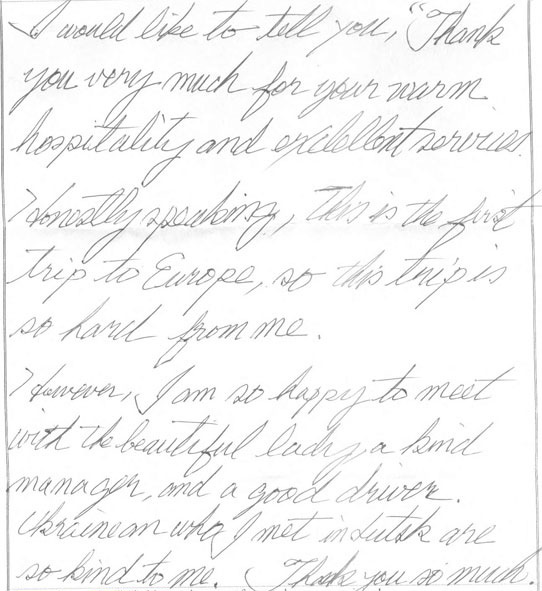 I would like to tell you, "Thank
you very much for your warm
hospitality and excellent services.
Honestly speaking, this is the first
trip to Europe, so this trip is
so hard from me.
However, I am so happy to meet
with the beautiful lady, a kind
manager, and a good driver.
Ukrainean who I met in Lutsk are
so kind to me. Thank you so much.